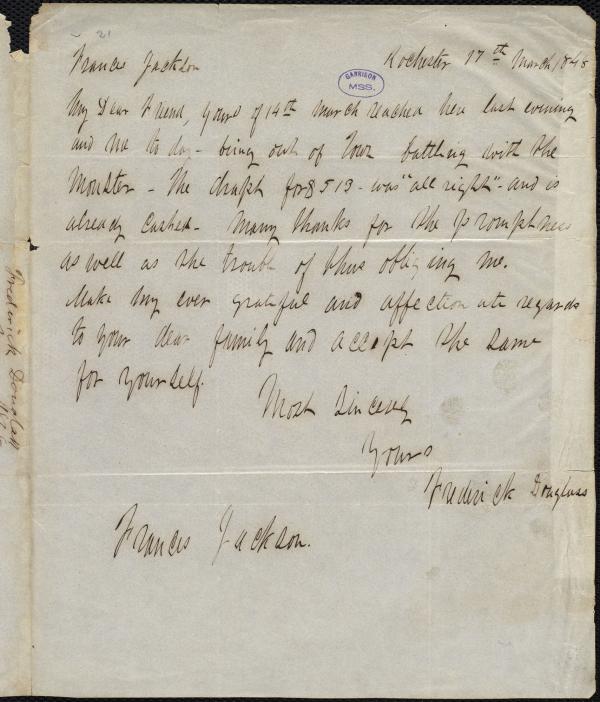 21
Francis Jackson Rochester 17th March 1848
GARRISON
MSS.
My Dear Friend, Yours of 14th March reached here last evening
and me to day - being out of Town battling with the
Monster - The draft for $513 - was "all right" - and is
already cashed - Many thanks for the promptness
as well as the trouble of thus obliging me.
Make my ever grateful and affectionate regards
to your dear family and accept the same
for yourself.
Most Sincerely
Yours
Frederick Douglass
Francis Jackson.
Frederick Douglass